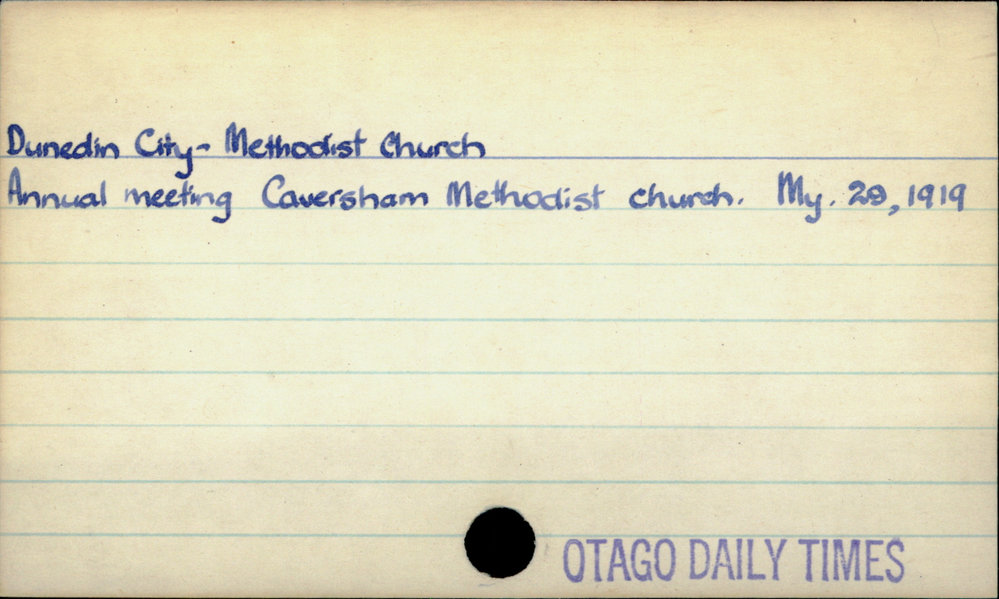 Dunedin City - Methodist Church
Annual meeting Caversham Methodist church. My. 29, 1919
OTAGO DAILY TIMES